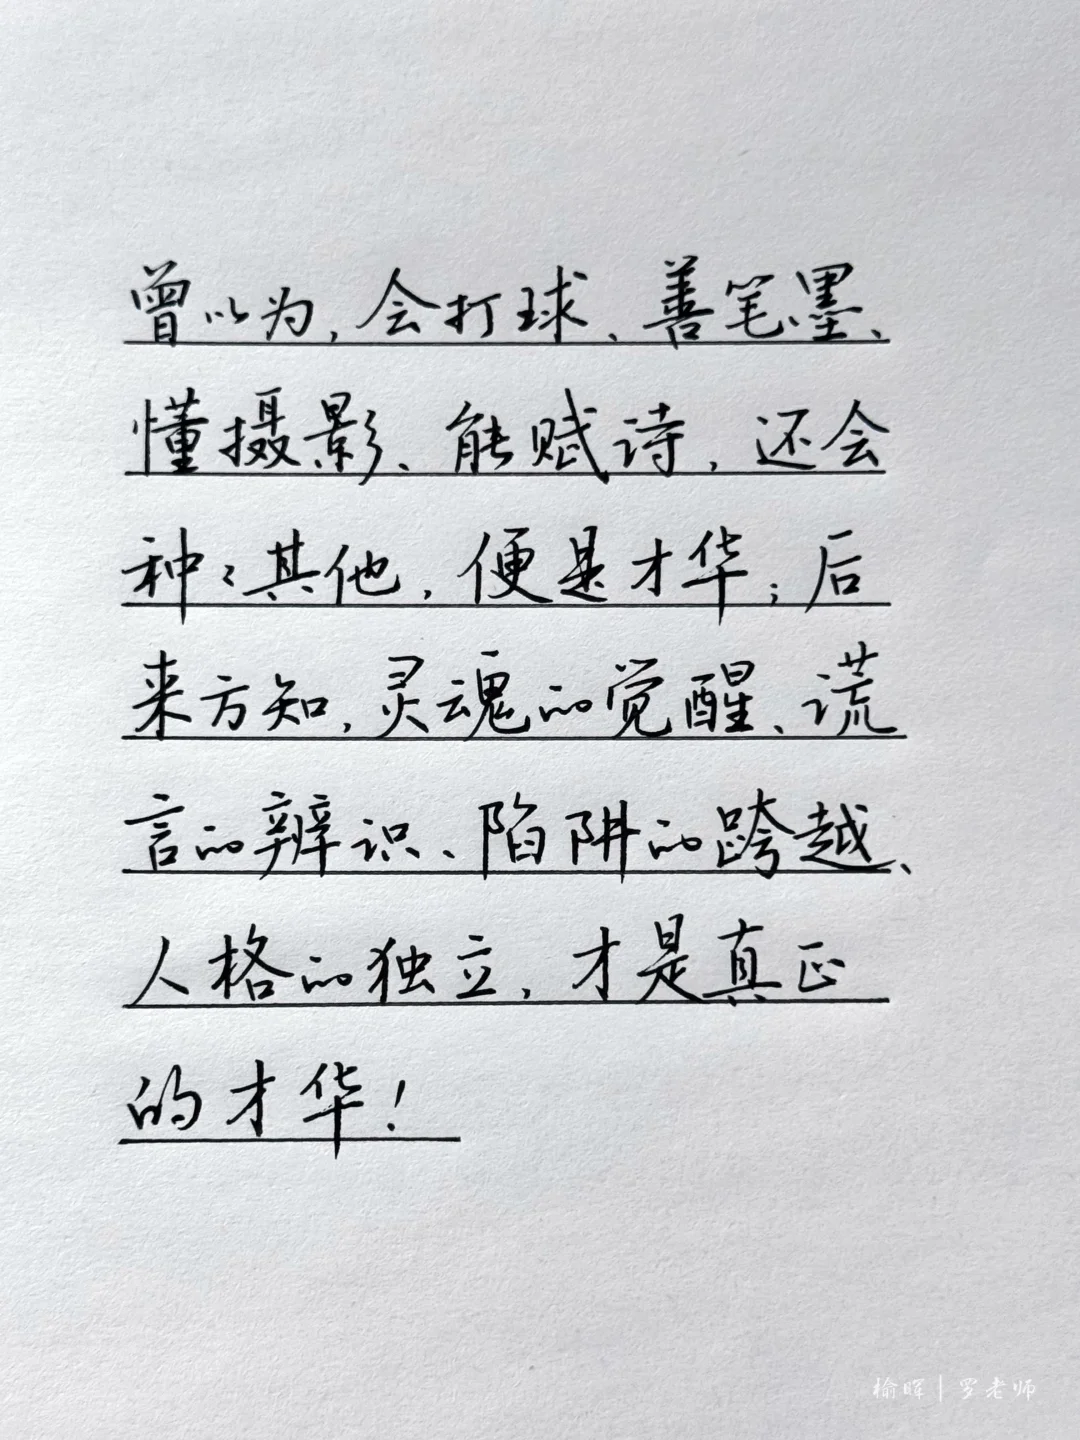 曾以为,会打球、善笔墨、
懂摄影、能赋诗,还会
种々其他,便是才华;后
来方知,灵魂的觉醒、谎
言的辨识、陷阱的跨越、
人格的独立,才是真正
的才华!
榆晖|罗老师